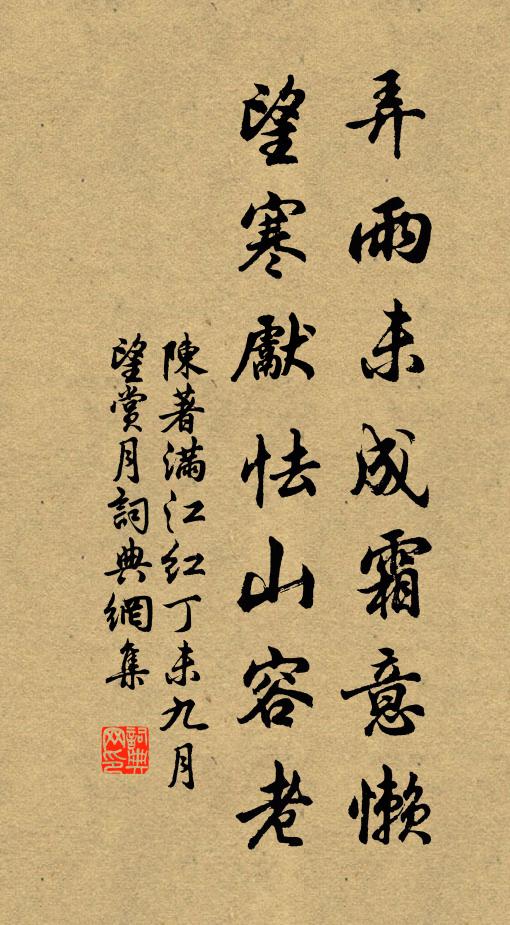 弄雨未成霜意懶
望寒獻怯山容老
陳著滿江红丁未九月
望賞月詞典網集
詞典网印